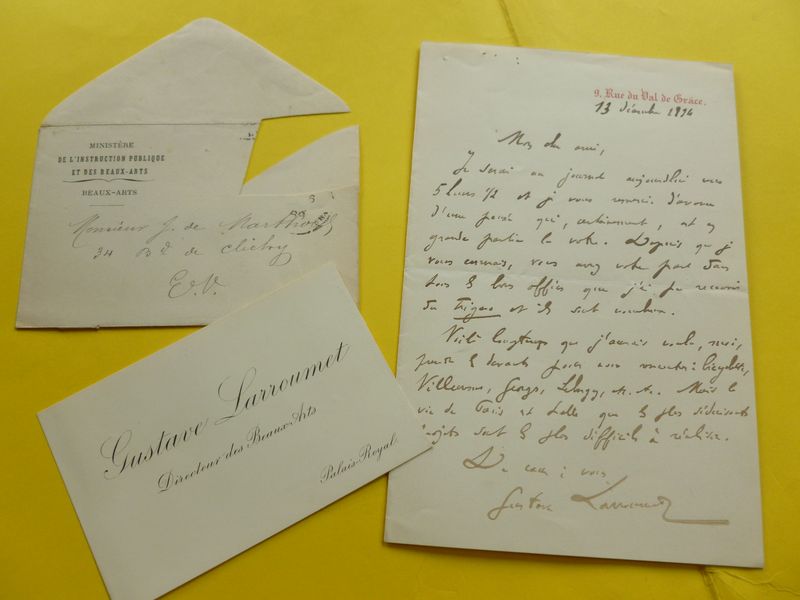 MINISTÈRE
DE L'INSTRUCTION PUBLIQUE
ET DES BEAUX-ARTS
BEAUX-ARTS
Monsieur J. de
34 Bd de Clichy
E.V.
Gustave Larroumet
Directeur des Beaux-Arts
Palais-Royal.
9, Rue du Val de Grâce.
13 décembre 1894
Mon cher ami,
Je serai au journal aujourd'hui vers
5 heures 1/2 et je vous remercie d'avance
d'une pensée qui, certainement, est en
grande partie la vôtre. Depuis que je
vous connais, vous avez votre part dans
tous les bons offices que j'ai pu recevoir
du Figaro et ils sont nombreux.
Voilà longtemps que j'aurais voulu, moi,
prendre les devants pour nous
Mais la
vie de Paris est telle que les plus séduisants
projets sont les plus difficiles à réaliser.
De cœur à vous,
Gustave Larroumet